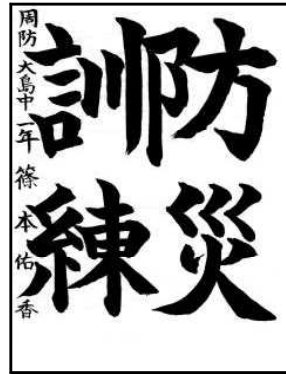 防災
訓練
周防大島中一年 篠本佑香